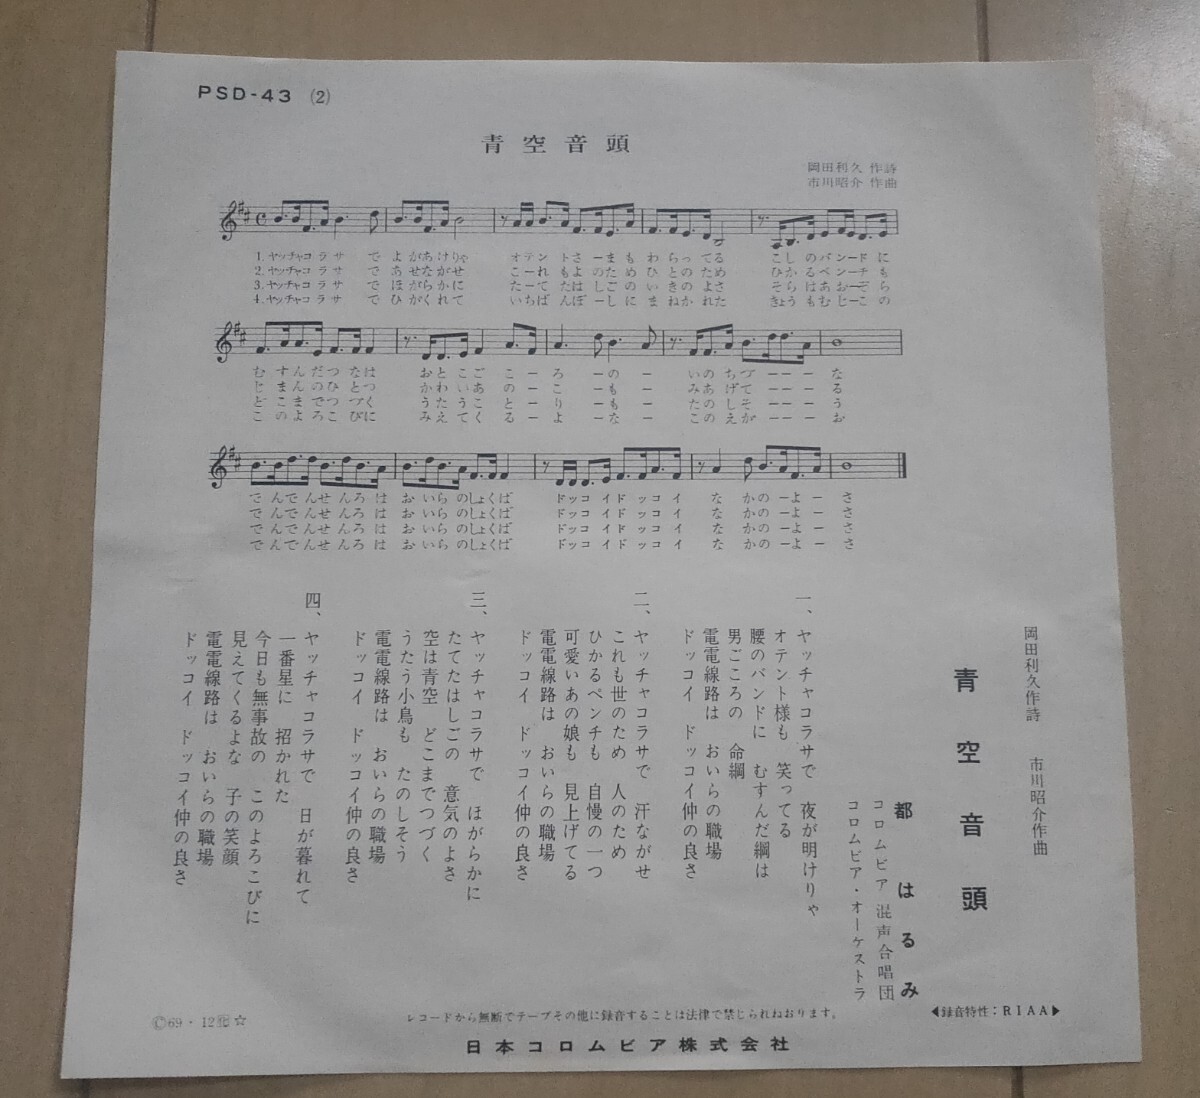 PSD-43 (2)
青空音頭
岡田利久 作詩
市川昭介 作曲
1.ヤッチャコラサ で よがあけりゃ オテントさーまも わらってる こしのバンドに
2.ヤッチャコラサ で あせながせ こーれ もよのため ひとのため ひかるペンーチも
3.ヤッチャコラサ で ほがらかに たーて たはしごの いきのよさ そらはあおーぞら
4.ヤッチャコラサ で ひがくれて いちばんぼーしに まねかれた きょうもむじーこの
むすんだつなは おとこごこーろーのー いのちづーーーな
じまんのひとつ かわいあのーこーもー みあげてーーーる
どこまでつづく うたうことーりーもー たのしそーーーう
このよろこびに みえてくるーよーなー このえがーーーお
でんでんせんろは おいらのしょくば ドッコイドッコイ なかのーよーさ
でんでんせんろは おいらのしょくば ドッコイドッコイ なかのーよーさ
でんでんせんろは おいらのしょくば ドッコイドッコイ なかのーよーさ
でんでんせんろは おいらのしょくば ドッコイドッコイ なかのーよーさ
岡田利久作詩 市川昭介作曲
青空音頭
都はるみ
コロムビア混声合唱団
コロムビア・オーケストラ
一、ヤッチャコラサで 夜が明けりゃ
オテント様も 笑ってる
腰のバンドに むすんだ綱は
男ごころの 命綱
電電線路は おいらの職場
ドッコイ ドッコイ仲の良さ
二、ヤッチャコラサで 汗ながせ
これも世のため 人のため
ひかるペンチも 自慢の一つ
可愛いあの娘も 見上げてる
電電線路は おいらの職場
ドッコイ ドッコイ仲の良さ
三、ヤッチャコラサで ほがらかに
たてたはしごの 意気のよさ
空は青空 どこまでつづく
うたう小鳥も たのしそう
電電線路は おいらの職場
ドッコイ ドッコイ仲の良さ
四、ヤッチャコラサで 日が暮れて
一番星に 招かれた
今日も無事故の このよろこびに
見えてくるよな 子の笑顔
電電線路は おいらの職場
ドッコイ ドッコイ仲の良さ
Ⓒ69・12 ☆
レコードから無断でテープその他に録音することは法律で禁じられております。
◀録音特性：RIAA▶
日本コロムビア株式会社